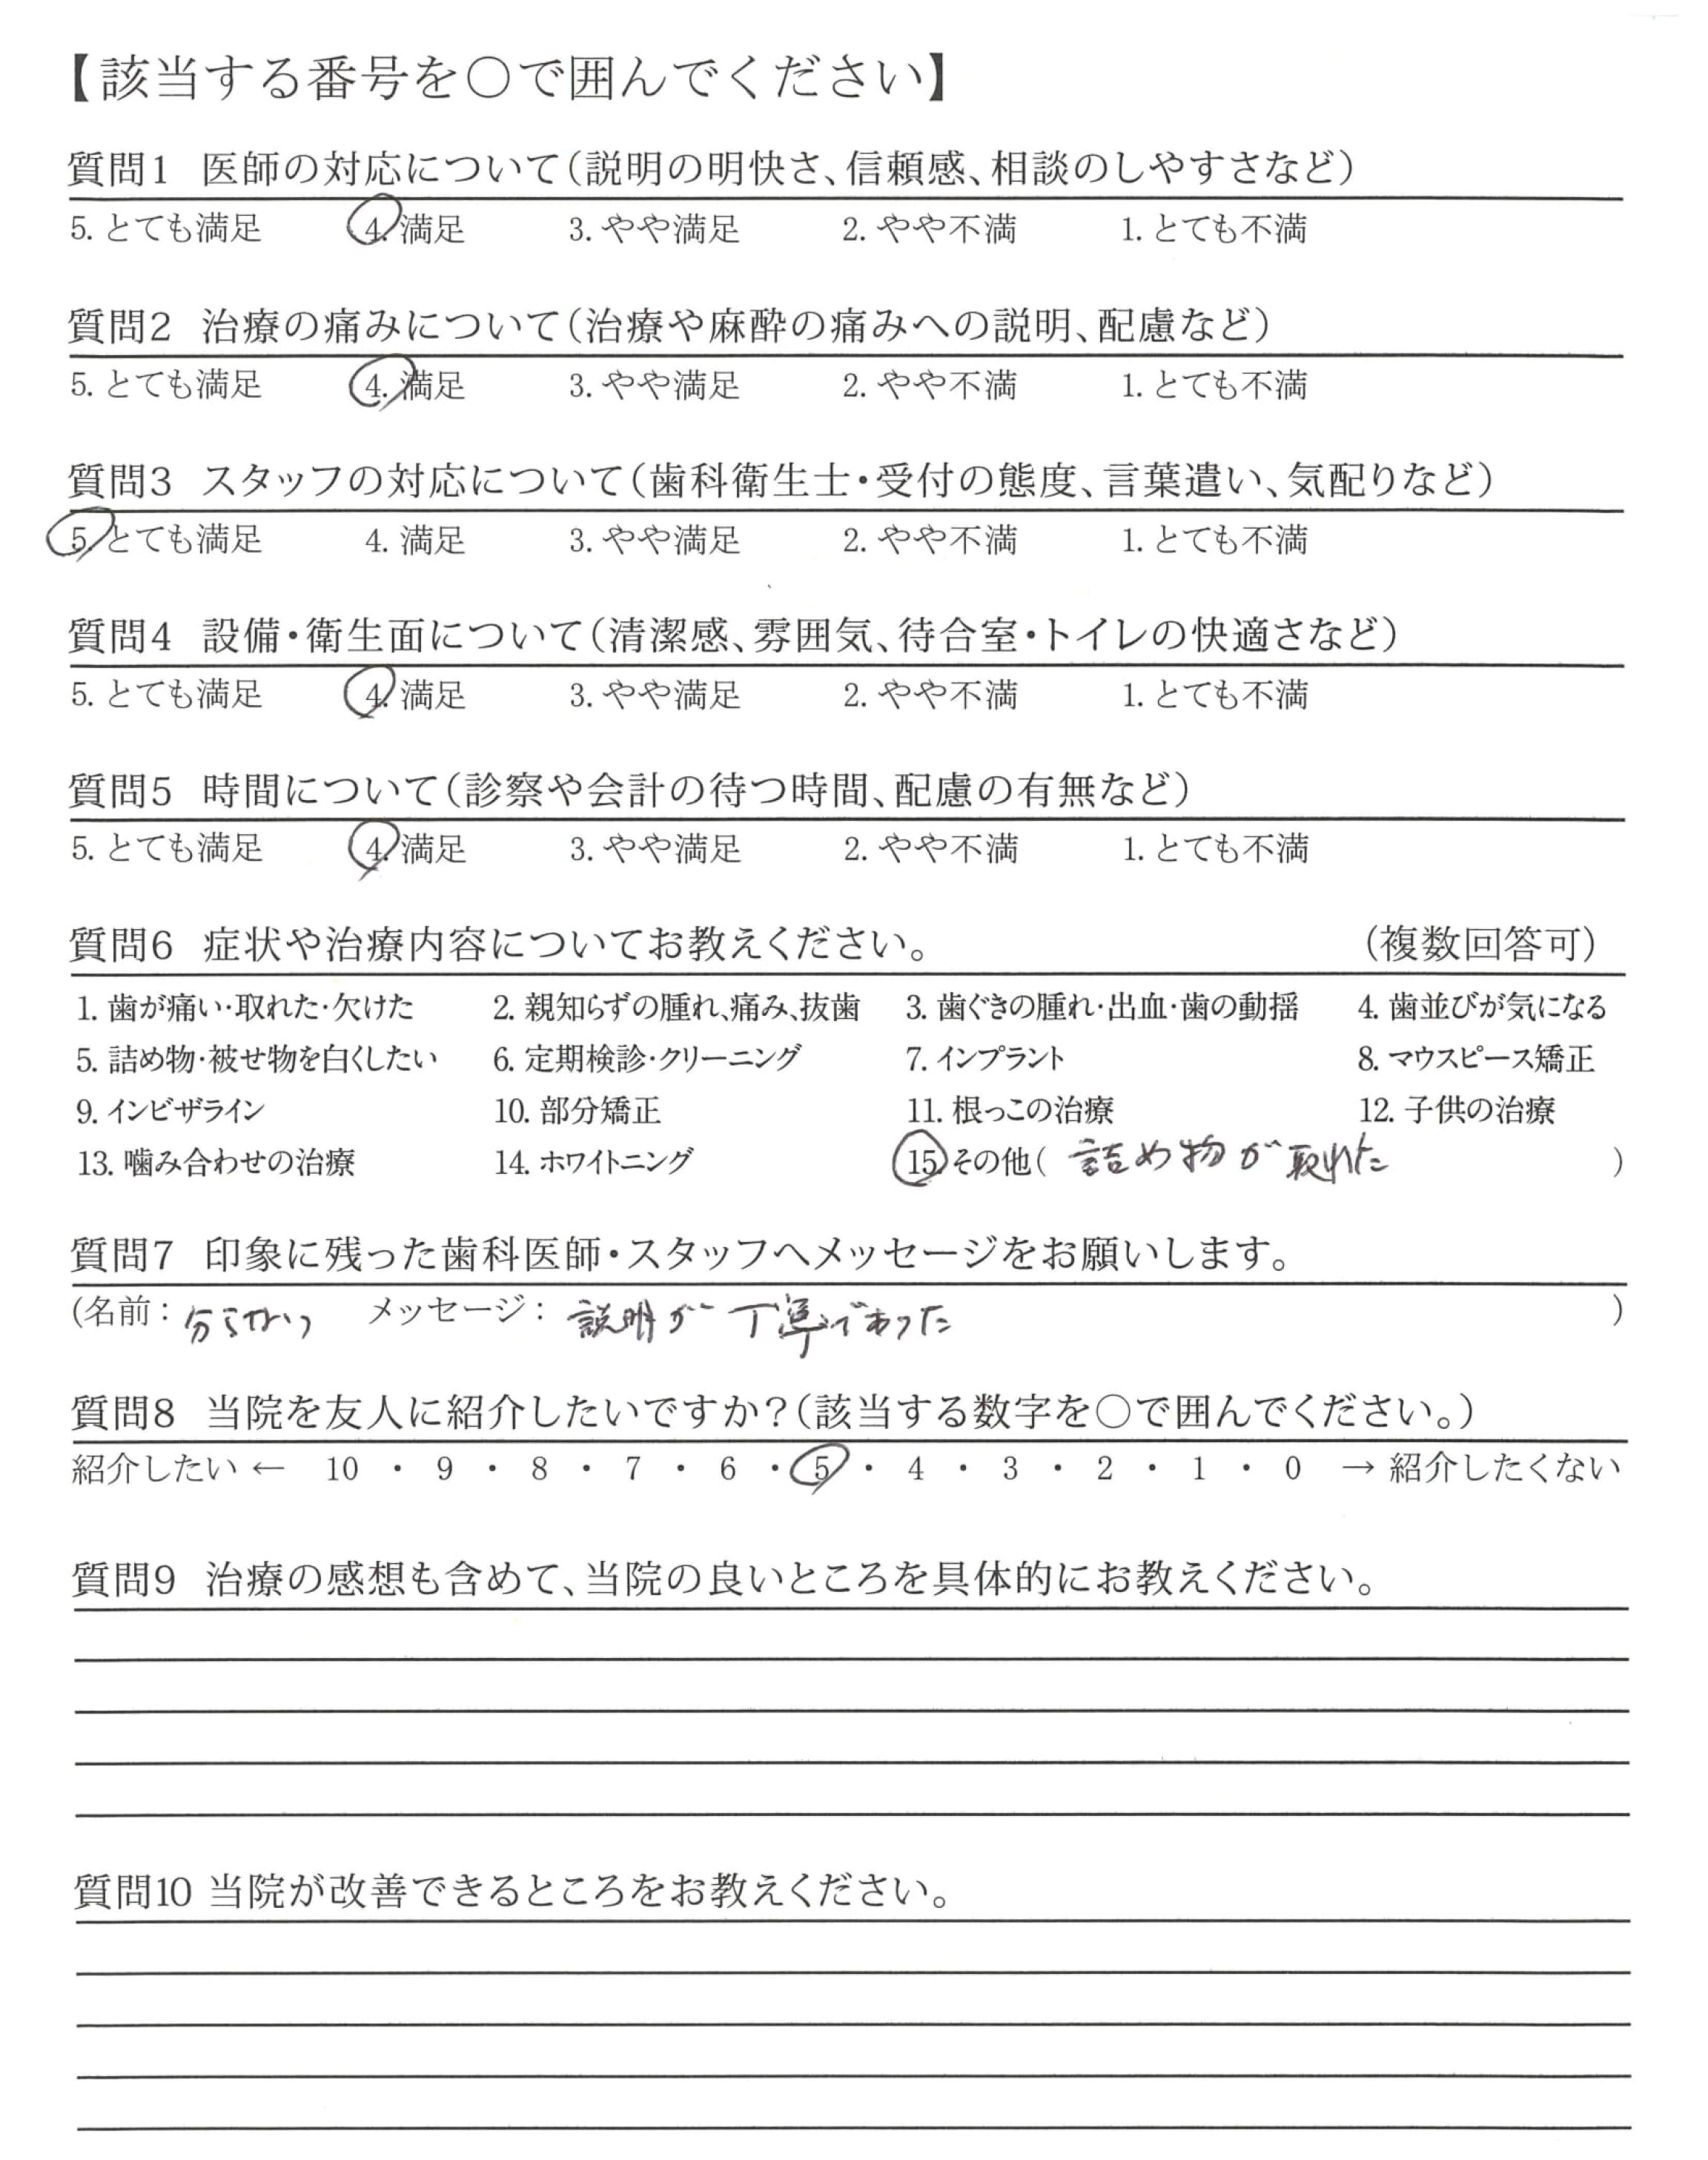 【該当する番号を○で囲んでください】
質問1 医師の対応について(説明の明快さ、信頼感、相談のしやすさなど)
5. とても満足 4. 満足 3. やや満足 2. やや不満 1. とても不満
質問2 治療の痛みについて(治療や麻酔の痛みへの説明、配慮など)
5. とても満足 4. 満足 3. やや満足 2. やや不満 1. とても不満
質問3 スタッフの対応について(歯科衛生士・受付の態度、言葉遣い、気配りなど)
5. とても満足 4. 満足 3. やや満足 2. やや不満 1. とても不満
質問4 設備・衛生面について(清潔感、雰囲気、待合室・トイレの快適さなど)
5. とても満足 4. 満足 3. やや満足 2. やや不満 1. とても不満
質問5 時間について(診察や会計の待つ時間、配慮の有無など)
5. とても満足 4. 満足 3. やや満足 2. やや不満 1. とても不満
質問6 症状や治療内容についてお教えください。 (複数回答可)
1. 歯が痛い・取れた・欠けた 2. 親知らずの腫れ、痛み、抜歯 3. 歯ぐきの腫れ・出血・歯の動揺 4. 歯並びが気になる
5. 詰め物・被せ物を白くしたい 6. 定期検診・クリーニング 7. インプラント 8. マウスピース矯正
9. インビザライン 10. 部分矯正 11. 根っこの治療 12. 子供の治療
13. 噛み合わせの治療 14. ホワイトニング 15. その他( 詰め物が取れた )
質問7 印象に残った歯科医師・スタッフへメッセージをお願いします。
(名前: 分らない メッセージ: 説明が丁寧であった )
質問8 当院を友人に紹介したいですか?(該当する数字を○で囲んでください。)
紹介したい ← 10 ・ 9 ・ 8 ・ 7 ・ 6 ・ 5 ・ 4 ・ 3 ・ 2 ・ 1 ・ 0 → 紹介したくない
質問9 治療の感想も含めて、当院の良いところを具体的にお教えください。
質問10 当院が改善できるところをお教えください。